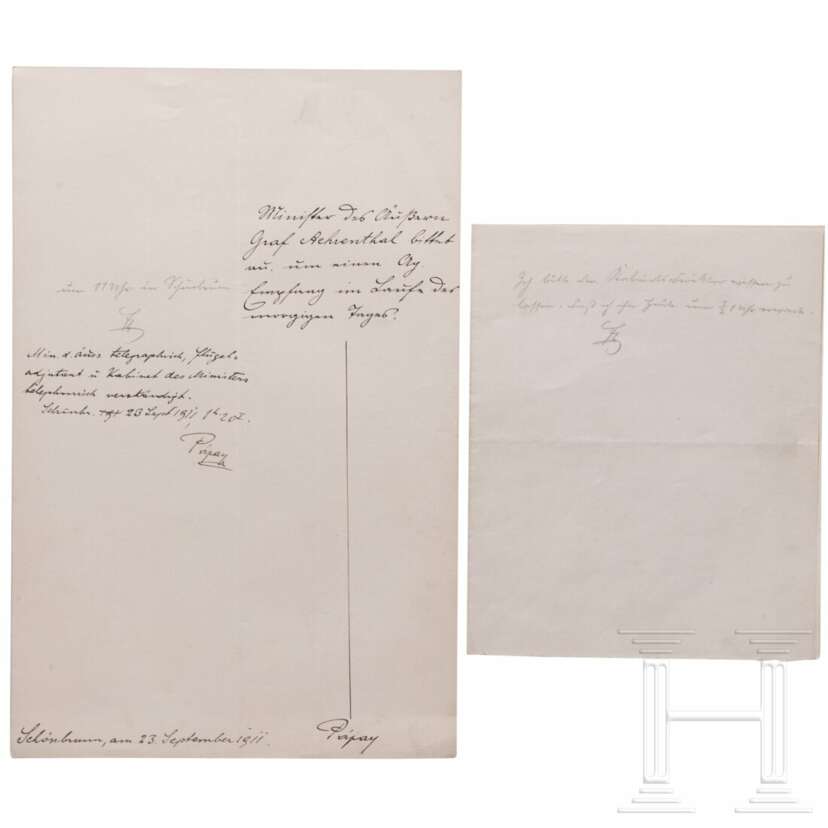 Minister des Äußern
Graf Aehrenthal bittet
au. um einen Ag.
Empfang im Laufe des
morgigen Tages.
um 11 Uhr in Schönbrunn
Min. d. äuss telegraphisch, Flügel-
adjutant u Kabinet des Ministers
telephonisch verständigt.
Schönbr. 23 Sept 1911 1h 20
Pápay
Schönbrunn, am 23. September 1911.
Pápay
Ich bitte den Kabinetsdirektor wissen zu
lassen, daß ich ihn heute um ½ 1 Uhr erwarte.
H